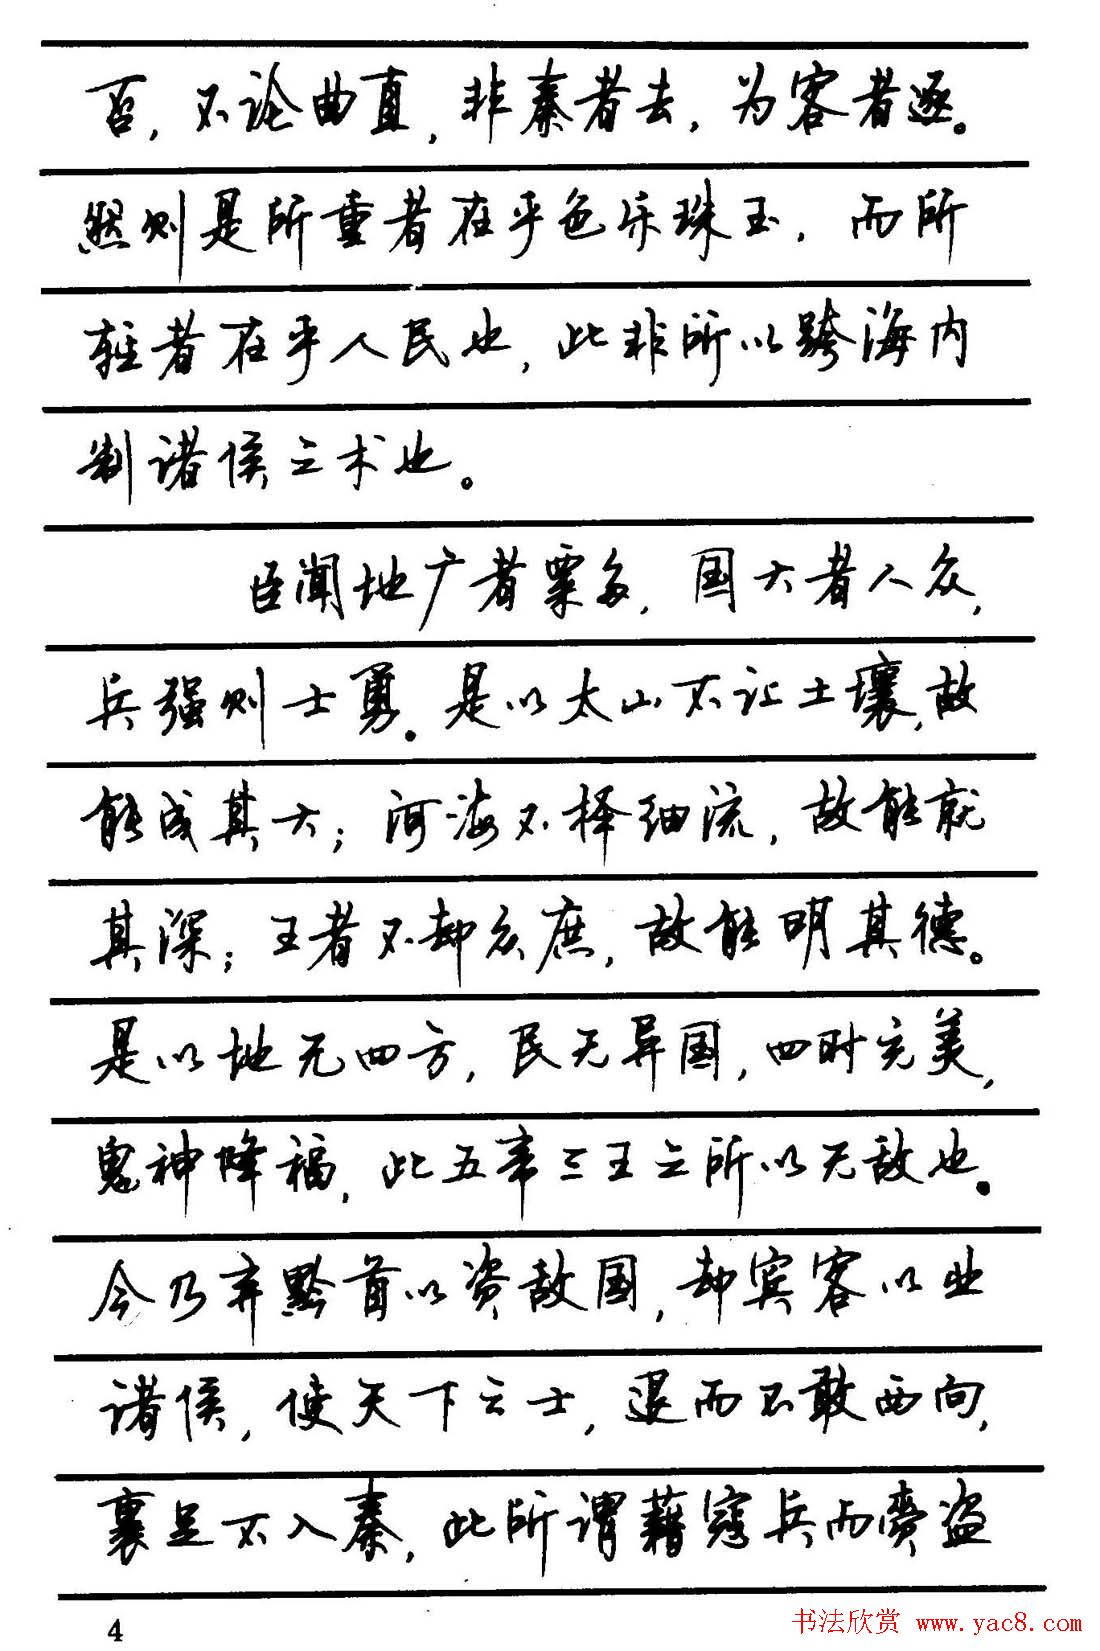 否，不论曲直，非秦者去，为客者逐。
然则是所重者在乎色乐珠玉，而所
轻者在乎人民也，此非所以跨海内
制诸侯之术也。
臣闻地广者粟多，国大者人众，
兵强则士勇。是以太山不让土壤，故
能成其大；河海不择细流，故能就
其深；王者不却众庶，故能明其德。
是以地无四方，民无异国，四时充美，
鬼神降福，此五帝三王之所以无敌也。
今乃弃黔首以资敌国，却宾客以业
诸侯，使天下之士，退而不敢西向，
裹足不入秦，此所谓藉寇兵而赍盗
4
书法欣赏 www.yac8.com